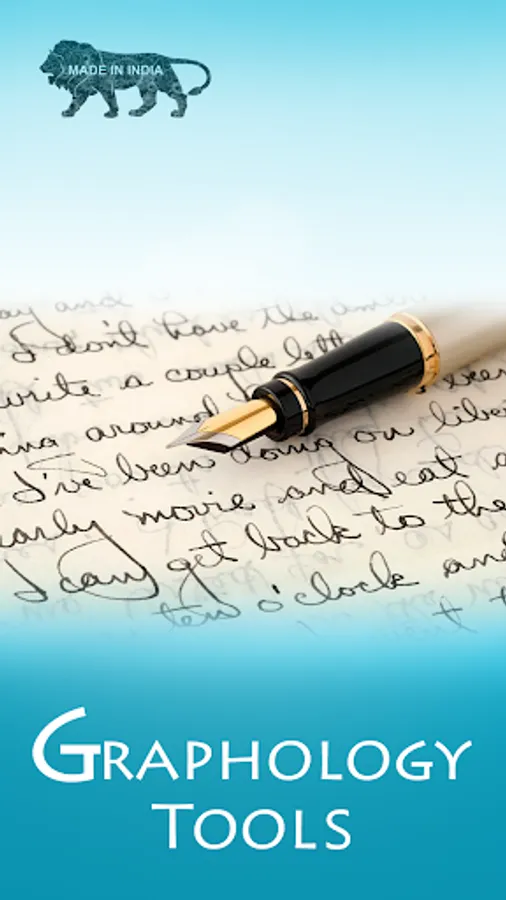 MADE IN INDIA
ay and
I don't have the
write a couple lett
around been
I've been doing on libe
early movie and eat a
I can get back to the
ten o'clock and
GRAPHOLOGY
TOOLS